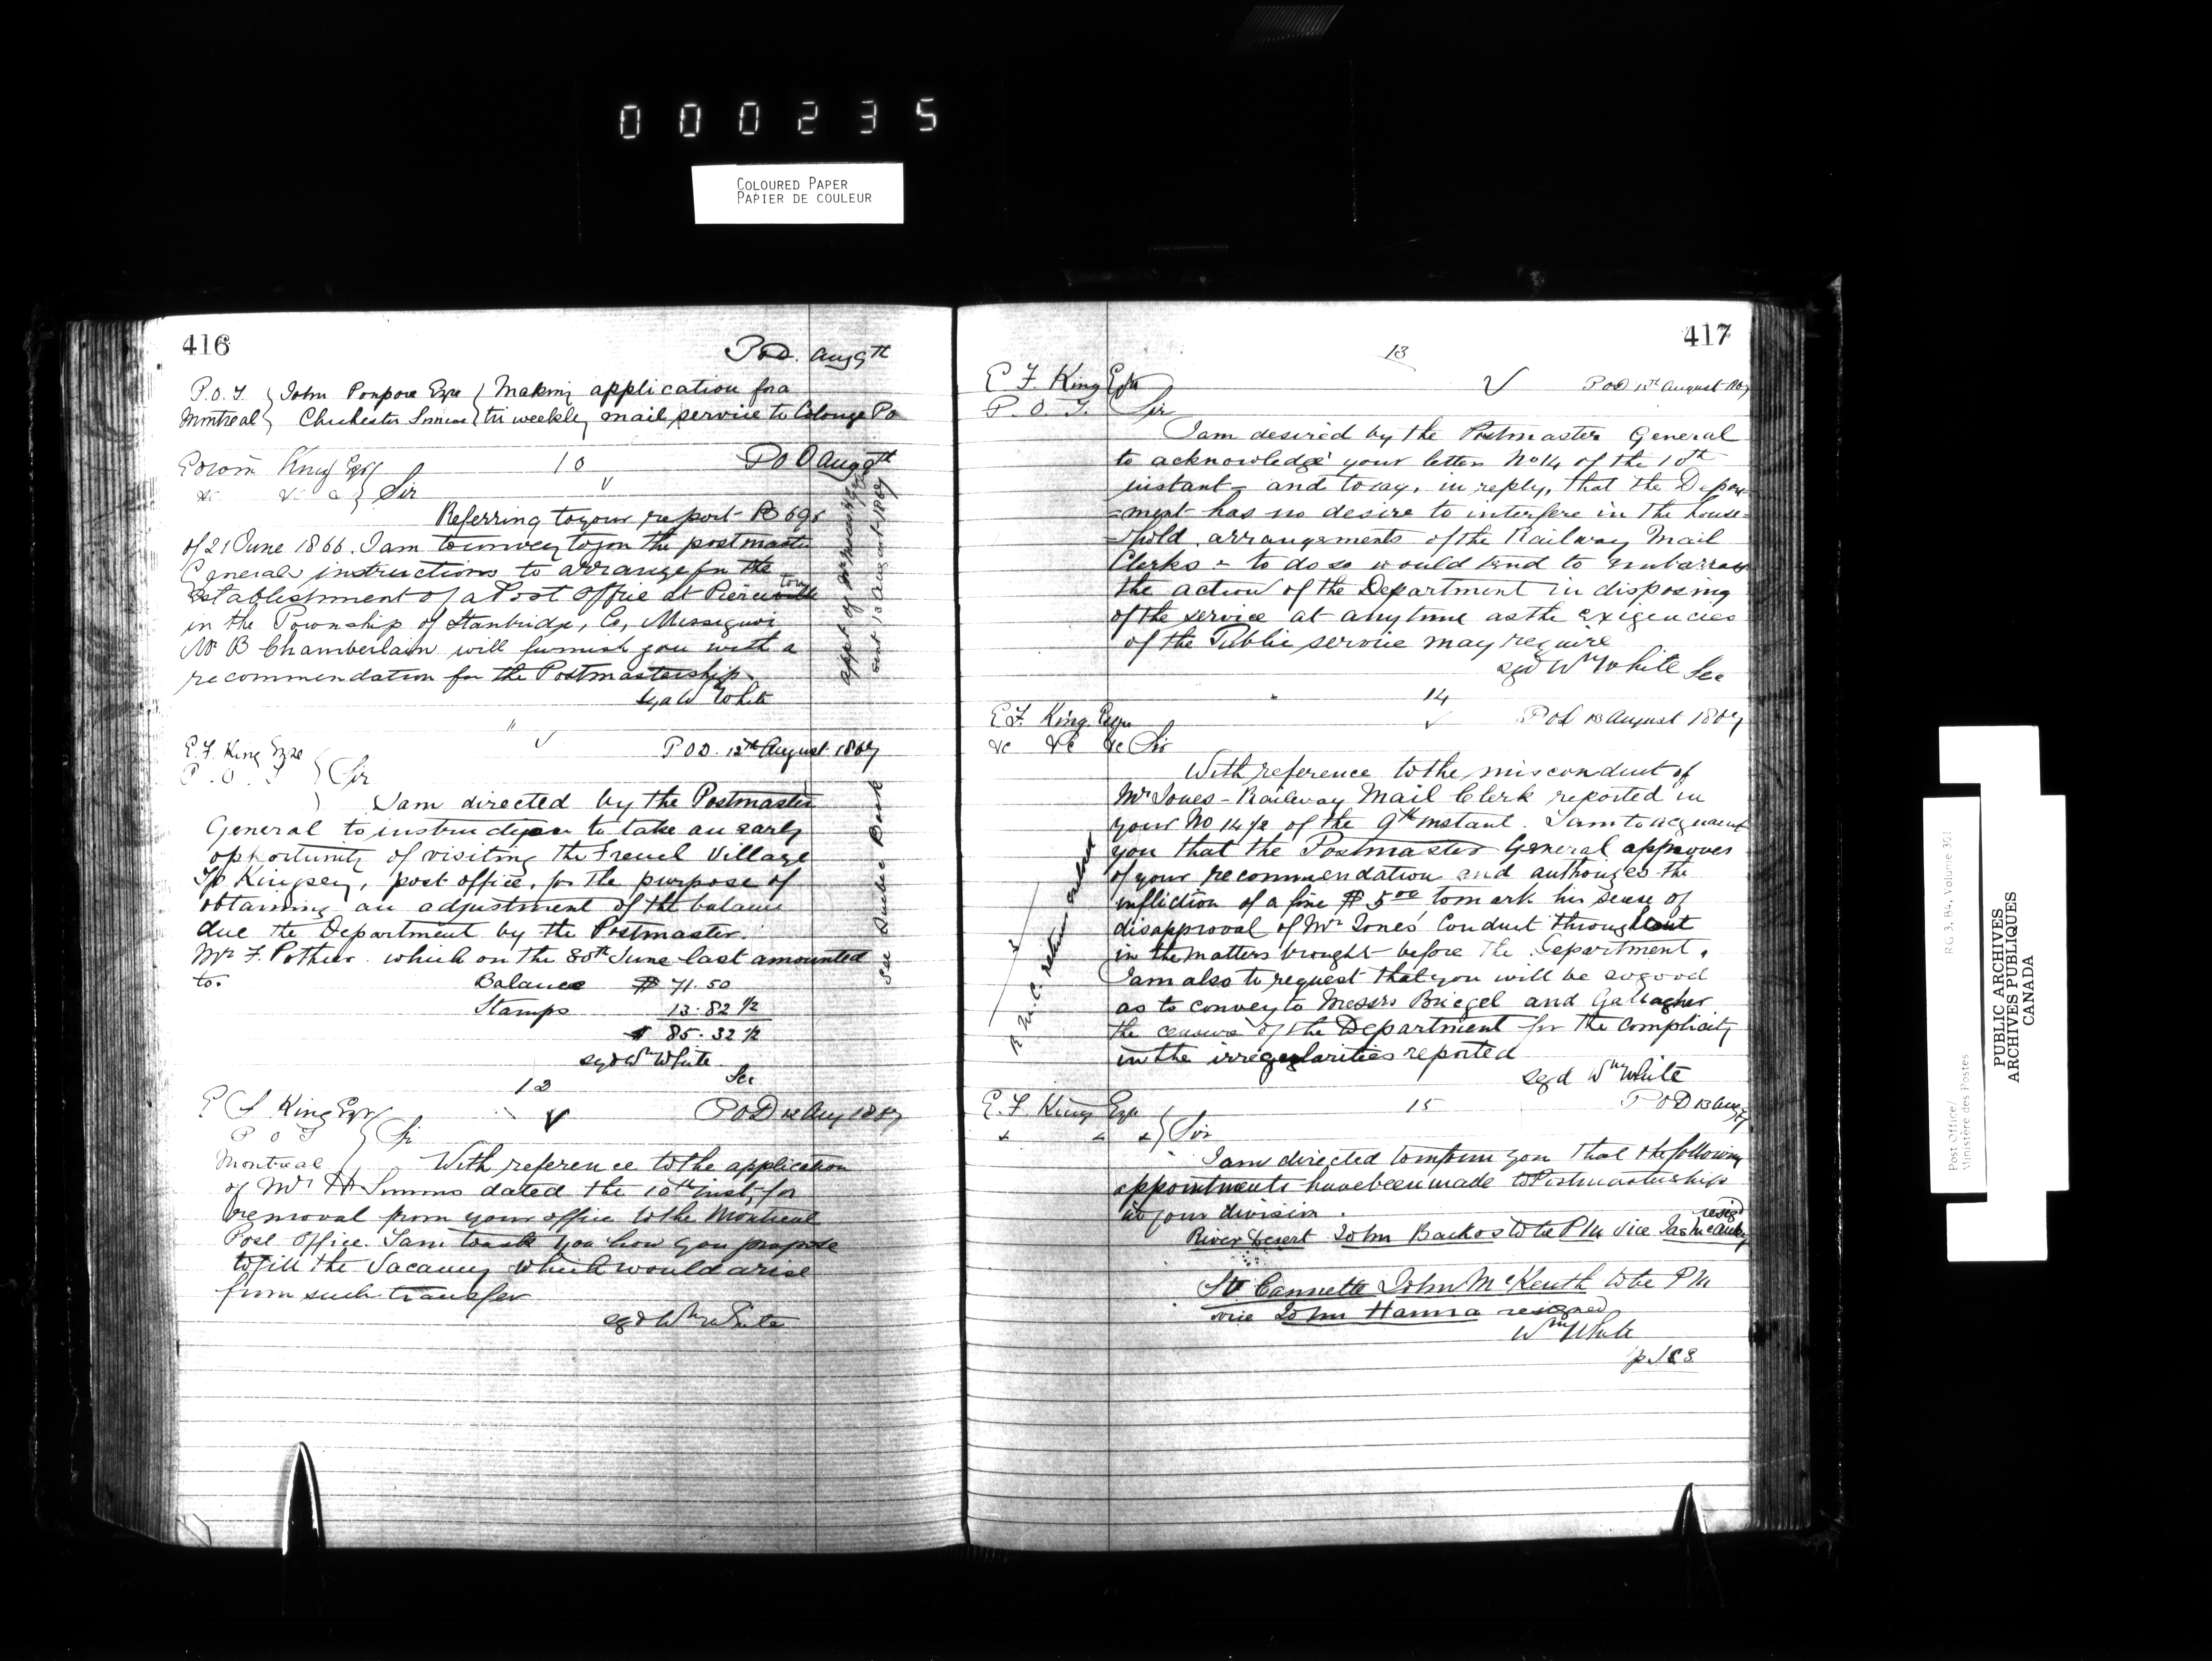 000235
COLOURED PAPER
PAPIER DE COULEUR
416
POD. Aug 9th
P.O.I. John Poupore Esqre Making application for a
Montreal Chichester tri weekly mail service to Colonge Po
Edwin King Esqr 10 POD Aug 9th
&c &c &c Sir
Referring to your report B 698
of 21 June 1866. I am to convey to you the postmaster
Generals instructions to arrange for the
establishment of a Post Office at
in the Township of Stanbridge, Co, Missisquoi
Mr B Chamberlain will furnish you with a
recommendation for the Postmastership.
sgd W White
sent 13 August 1867
E. F. King Esqre POD. 12th August 1867
P. O. I Sir
I am directed by the Postmaster
General to instruct you to take an early
opportunity of visiting the French Village
Tp Kingsey, post office, for the purpose of
obtaining an adjustment of the balance
due the Department by the Postmaster.
Mr F. Pothier. which on the 30th June last amounted
to.
Balance $ 71.50
Stamps 13.82 1/2
$ 85.32 1/2
sgd Wm White
Sec
See Quebec Book
12
E F King Esqr POD 12 Aug 1867
P O I Sir
Montreal With reference to the application
of Mr H Simms dated the 10th inst, for
removal from your office to the Montreal
Post Office. I am to ask you how you propose
to fill the Vacancy which would arise
from such transfer
sgd Wm White
417
13
E F King Esqr POD 13th August 1867
P. O. I. Sir
I am desired by the Postmaster General
to acknowledge your letter No 14 of the 10th
instant - and to say, in reply, that the Depart
=ment has no desire to interfere in the house=
=hold arrangements of the Railway Mail
Clerks - to do so would tend to embarrass
the action of the Department in disposing
of the service at any time as the exigencies
of the Public service may require
sgd Wm White Sec
14
E F King Esqre POD 13 August 1867
&c &c &c Sir
With reference to the misconduct of
Mr Jones - Railway Mail Clerk reported in
your No 14/2 of the 9th instant. I am to acquaint
you that the Postmaster General approves
of your recommendation and authorizes the
infliction of a fine $ 5.00 to mark his sense of
disapproval of Mr Jones' Conduct throughout
in the matters brought before the Department.
I am also to request that you will be so good
as to convey to Messrs Briegel and Gallagher
the censure of the Department for the complicity
in the irregularities reported
sgd Wm White
E. F. King Esqr 15 POD 13 Aug 67
Sir
I am directed to inform you that the following
appointments have been made to Postmasterships
in your division.
resigd
River Desert John Backos to be PM vice Jas McCauley
St Cannette John McKeuth to be PM
vice John Hanna resigned
Wm White
RG 3, B4, Volume 301
Post Office/
Ministère des Postes
PUBLIC ARCHIVES
ARCHIVES PUBLIQUES
CANADA